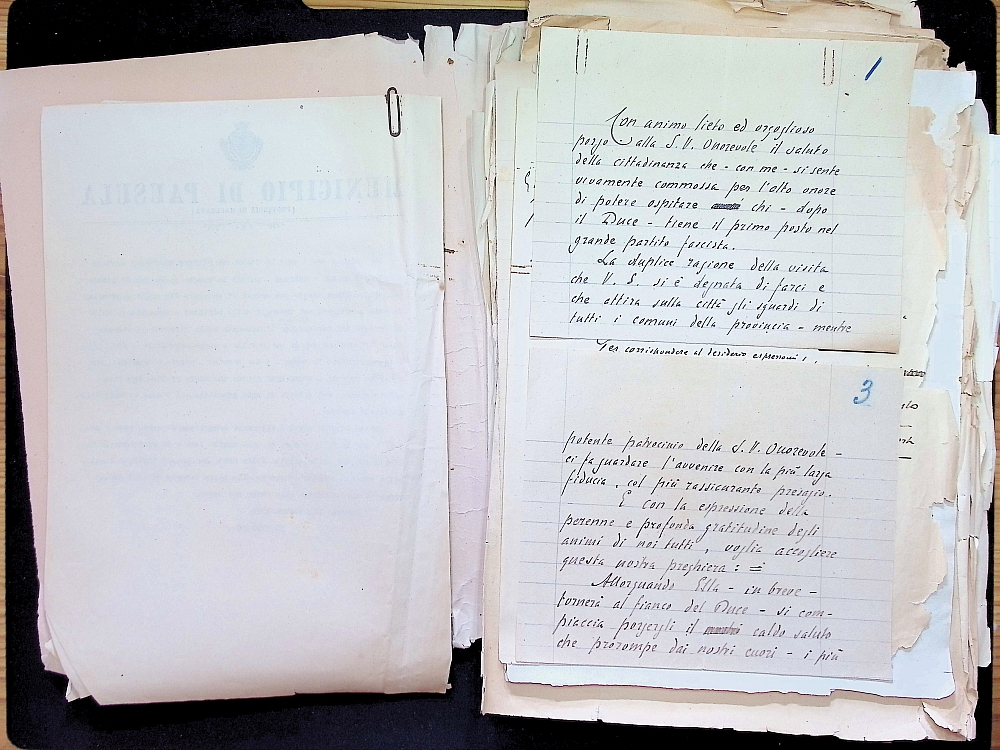 MUNICIPIO DI PAESELA
1
Con animo lieto ed orgoglioso
porgo alla S.V. Onorevole il saluto
della cittadinanza che - con me - si sente
vivamente commossa per l'alto onore
di potere ospitare chi - dopo
il Duce - tiene il primo posto nel
grande partito fascista.
La duplice ragione della visita
che V. S. si è degnata di farci e
che attira sulla città gli sguardi di
tutti i comuni della provincia - mentre
Per corrispondere al desiderio
3
potente patrocinio della S.V. Onorevole -
ci fa guardare l'avvenire con la più larga
fiducia, col più rassicurante presagio.
E con la espressione della
perenne e profonda gratitudine degli
animi di noi tutti, voglia accogliere
questa nostra preghiera: =
Allorquando Ella - in breve -
tornerà al fianco del Duce - si com-
piaccia porgergli il caldo saluto
che prorompe dai nostri cuori - i più